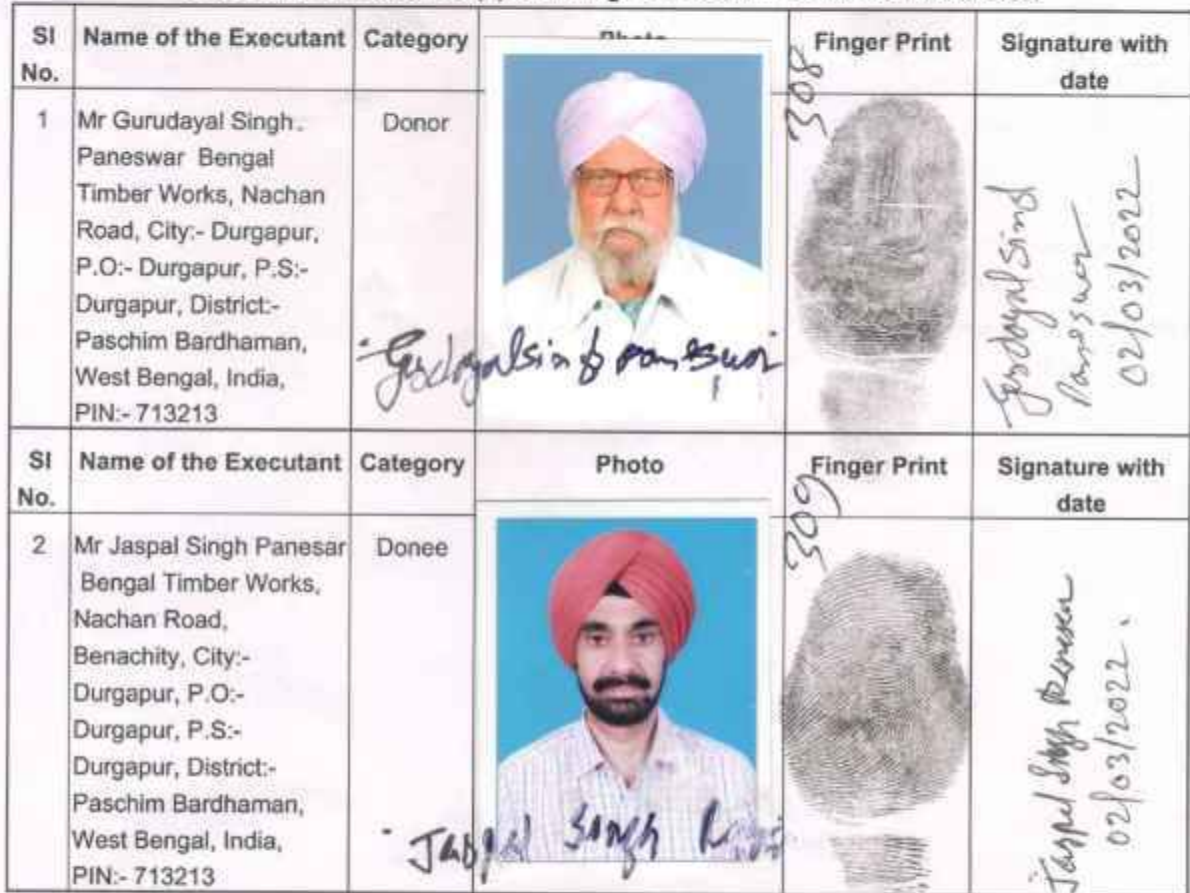 SI No.
Name of the Executant
Category
Photo
Finger Print
Signature with date
1
Mr Gurudayal Singh
Paneswar Bengal
Timber Works, Nachan
Road, City:- Durgapur,
P.O:- Durgapur, P.S:-
Durgapur, District:-
Paschim Bardhaman,
West Bengal, India,
PIN:- 713213
Donor
308
02/03/2022
SI No.
Name of the Executant
Category
Photo
Finger Print
Signature with date
2
Mr Jaspal Singh Panesar
Bengal Timber Works,
Nachan Road,
Benachity, City:-
Durgapur, P.O:-
Durgapur, P.S:-
Durgapur, District:-
Paschim Bardhaman,
West Bengal, India,
PIN:- 713213
Donee
Singh
309
02/03/2022